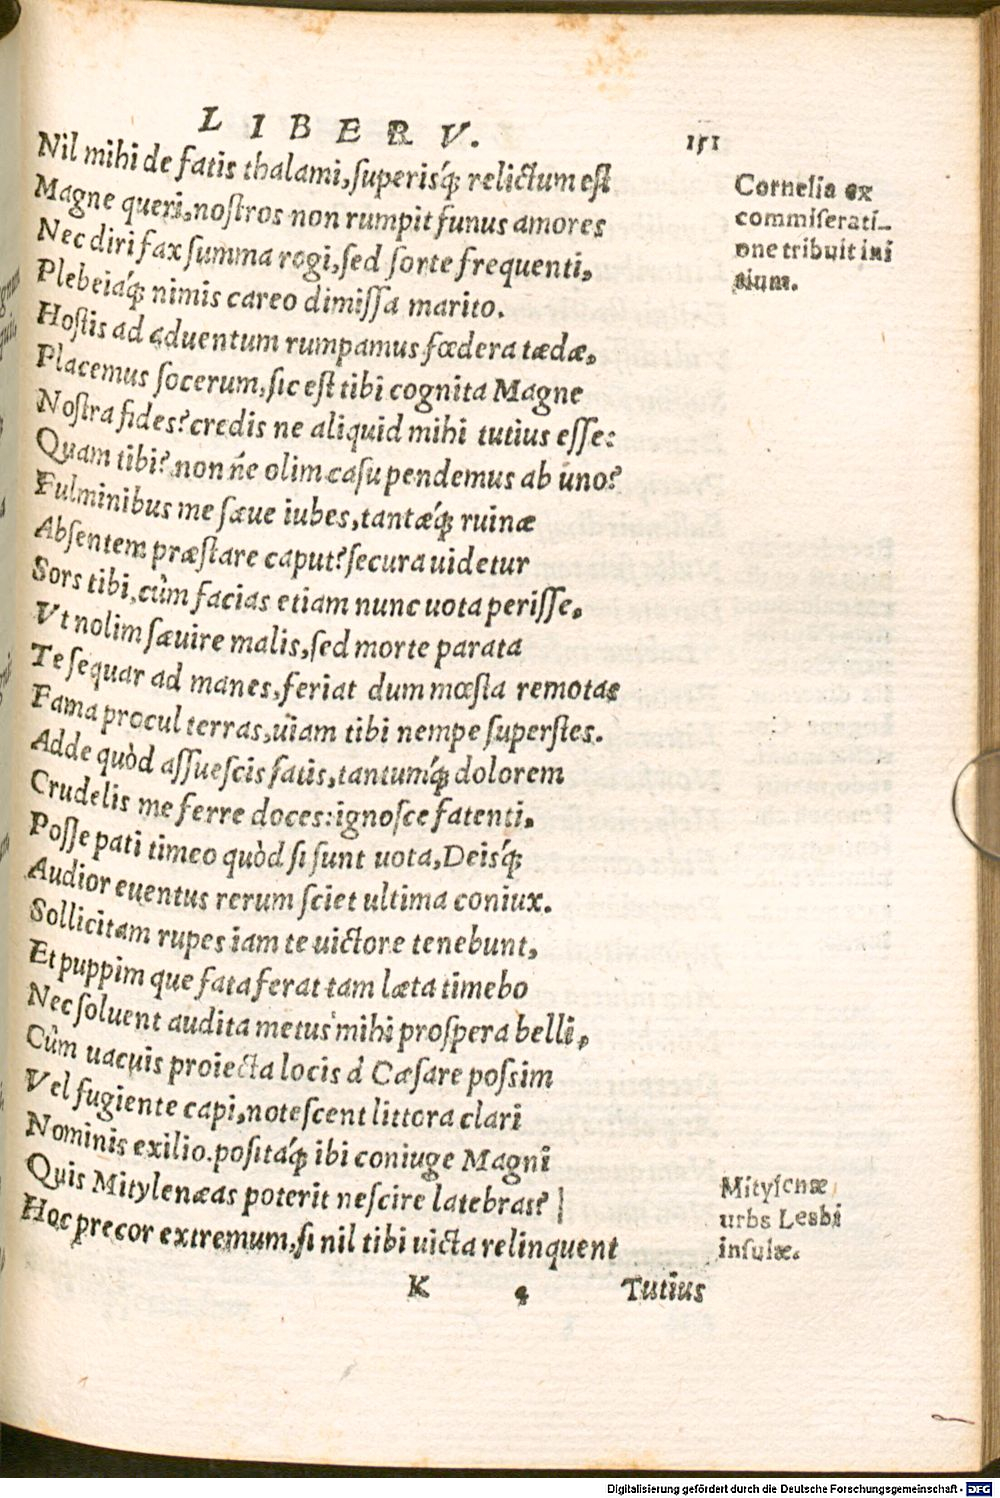 LIBER V. 151
Nil mihi de fatis thalami, ſuperisq́; relictum eſt
Magne queri, noſtros non rumpit funus amores
Nec diri fax ſumma rogi, ſed ſorte frequenti,
Plebeiaq́; nimis careo dimiſſa marito.
Hoſtis ad aduentum rumpamus fœdera tædæ,
Placemus ſocerum, ſic eſt tibi cognita Magne
Noſtra fides? credis ne aliquid mihi tutius eſſe:
Quam tibi? non ne olim caſu pendemus ab uno?
Fulminibus me ſæue iubes, tantæq́; ruinæ
Abſentem præſtare caput? ſecura uidetur
Sors tibi, cùm facias etiam nunc uota periſſe,
Vt nolim ſæuire malis, ſed morte parata
Te ſequar ad manes, feriat dum mœſta remotas
Fama procul terras, uiam tibi nempe ſuperſtes.
Adde quòd aſſueſcis fatis, tantumq́; dolorem
Crudelis me ferre doces: ignoſce fatenti,
Poſſe pati timeo quòd ſi ſunt uota, Deisq́;
Audior euentus rerum ſciet ultima coniux.
Sollicitam rupes iam te uictore tenebunt,
Et puppim que fata ferat tam læta timebo
Nec ſoluent audita metus mihi proſpera belli,
Cùm uacuis proiecta locis à Cæſare poſſim
Vel fugiente capi, noteſcent littora clari
Nominis exilio. poſitaq́; ibi coniuge Magni
Quis Mitylenæas poterit neſcire latebras?
Hoc precor extremum, ſi nil tibi uicta relinquent
K 4 Tutius
Cornelia ex
commiſerati-
one tribuit ini
tium.
Mitylenæ
urbs Lesbi
inſulæ.
Digitalisierung gefördert durch die Deutsche Forschungsgemeinschaft - DFG